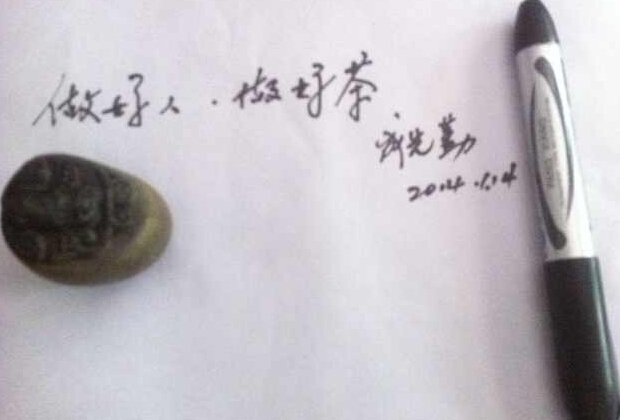 做好人.做好茶
成先勤
2014.1.14